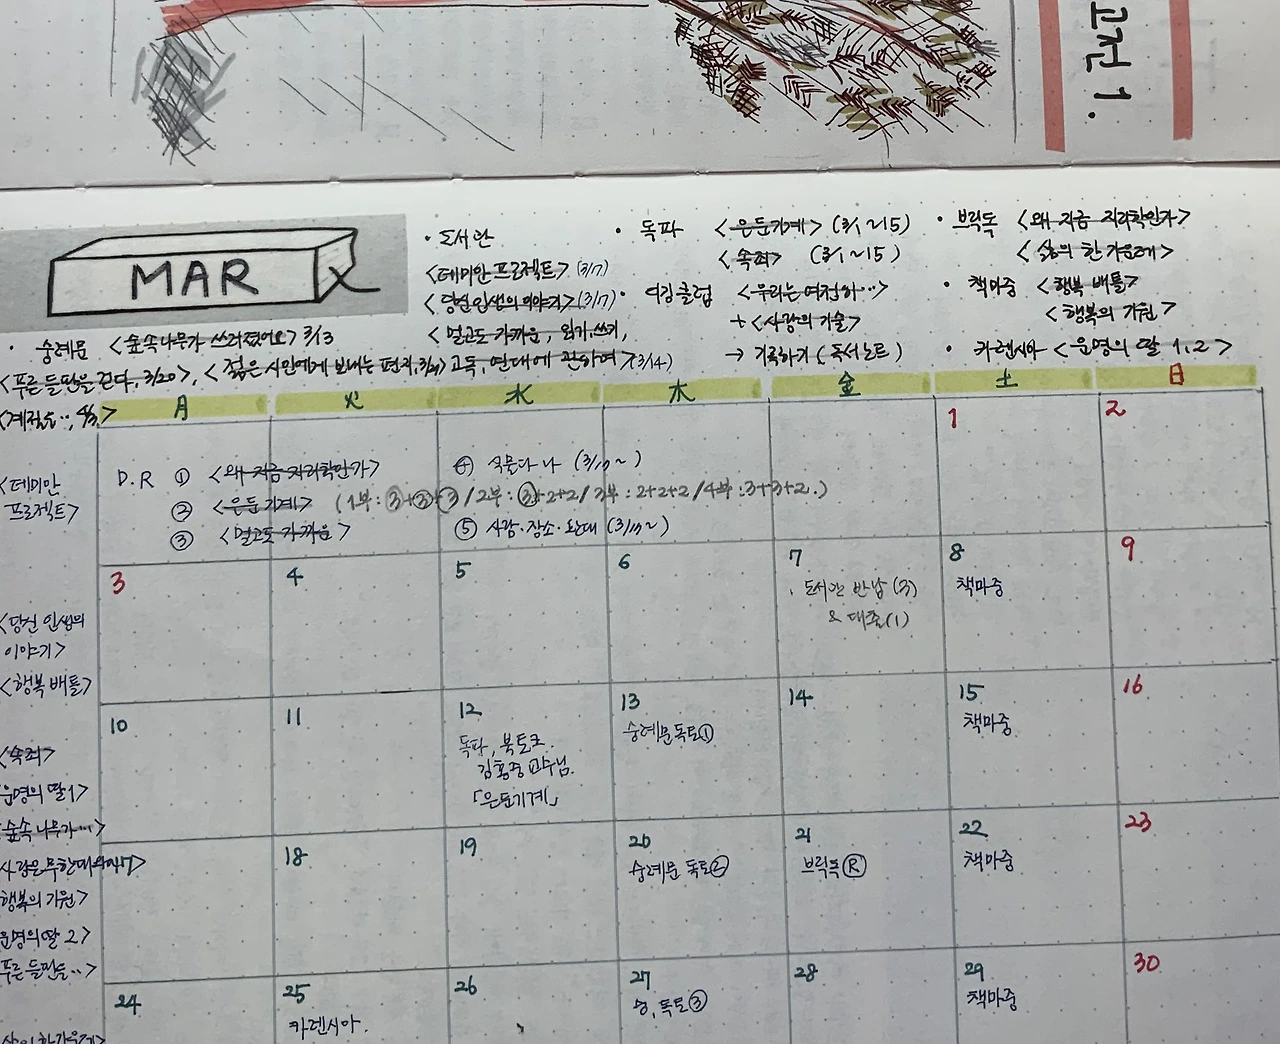 고전 1.
MAR
· 도서관
<데미안 프로젝트> (3/17)
<당신 인생의 이야기> (3/17)
<멀고도 가까운, 읽기, 쓰기,
고독, 연대에 관하여> (3/14)
· 독파 <은둔기계> (3/1~15)
<속죄> (3/1~15)
· 북클럽 <우리는 여전히…>
+ <사랑의 기술>
→ 기록하기 (독서노트)
· 브릭독 <왜 지금 지리학인가>
<삶의 한 가운데>
· 책마중 <행복 배틀>
<행복의 기원>
· 카렌시아 <운명의 딸 1, 2>
· 숭례문 <숲속 나무가 쓰러졌어요> 3/13
<푸른 들판을 걷다, 3/20>, <젊은 시인에게 보내는 편지, 3/27>
月 火 水 木 金 土 日
D.R ① <왜 지금 지리학인가>
② <은둔기계> (1부: ③+③+③ / 2부: ③+2+2 / 3부: 2+2+2 / 4부: 3+3+2.)
③ <멀고도 가까운>
④ 식물다나 (3/17~)
⑤ 사람·장소·환대 (3/17~)
1 2
<데미안
프로젝트>
3 4 5 6 7 8 9
· 도서관 반납 (3)
& 대출 (1)
책마중
<당신 인생의
이야기>
<행복 배틀>
10 11 12 13 14 15 16
독파, 북토크.
김홍중 교수님.
「은둔기계」
숭례문 독토①
책마중
<속죄>
운명의 딸 1>
숲속 나무가…>
18 19 20 21 22 23
숭례문 독토②
브릭독 Ⓡ
책마중
행복의 기원>
운명의 딸 2>
푸른 들판을..>
24 25 26 27 28 29 30
카렌시아.
숭, 독토③
책마중
삶의 한가운데>